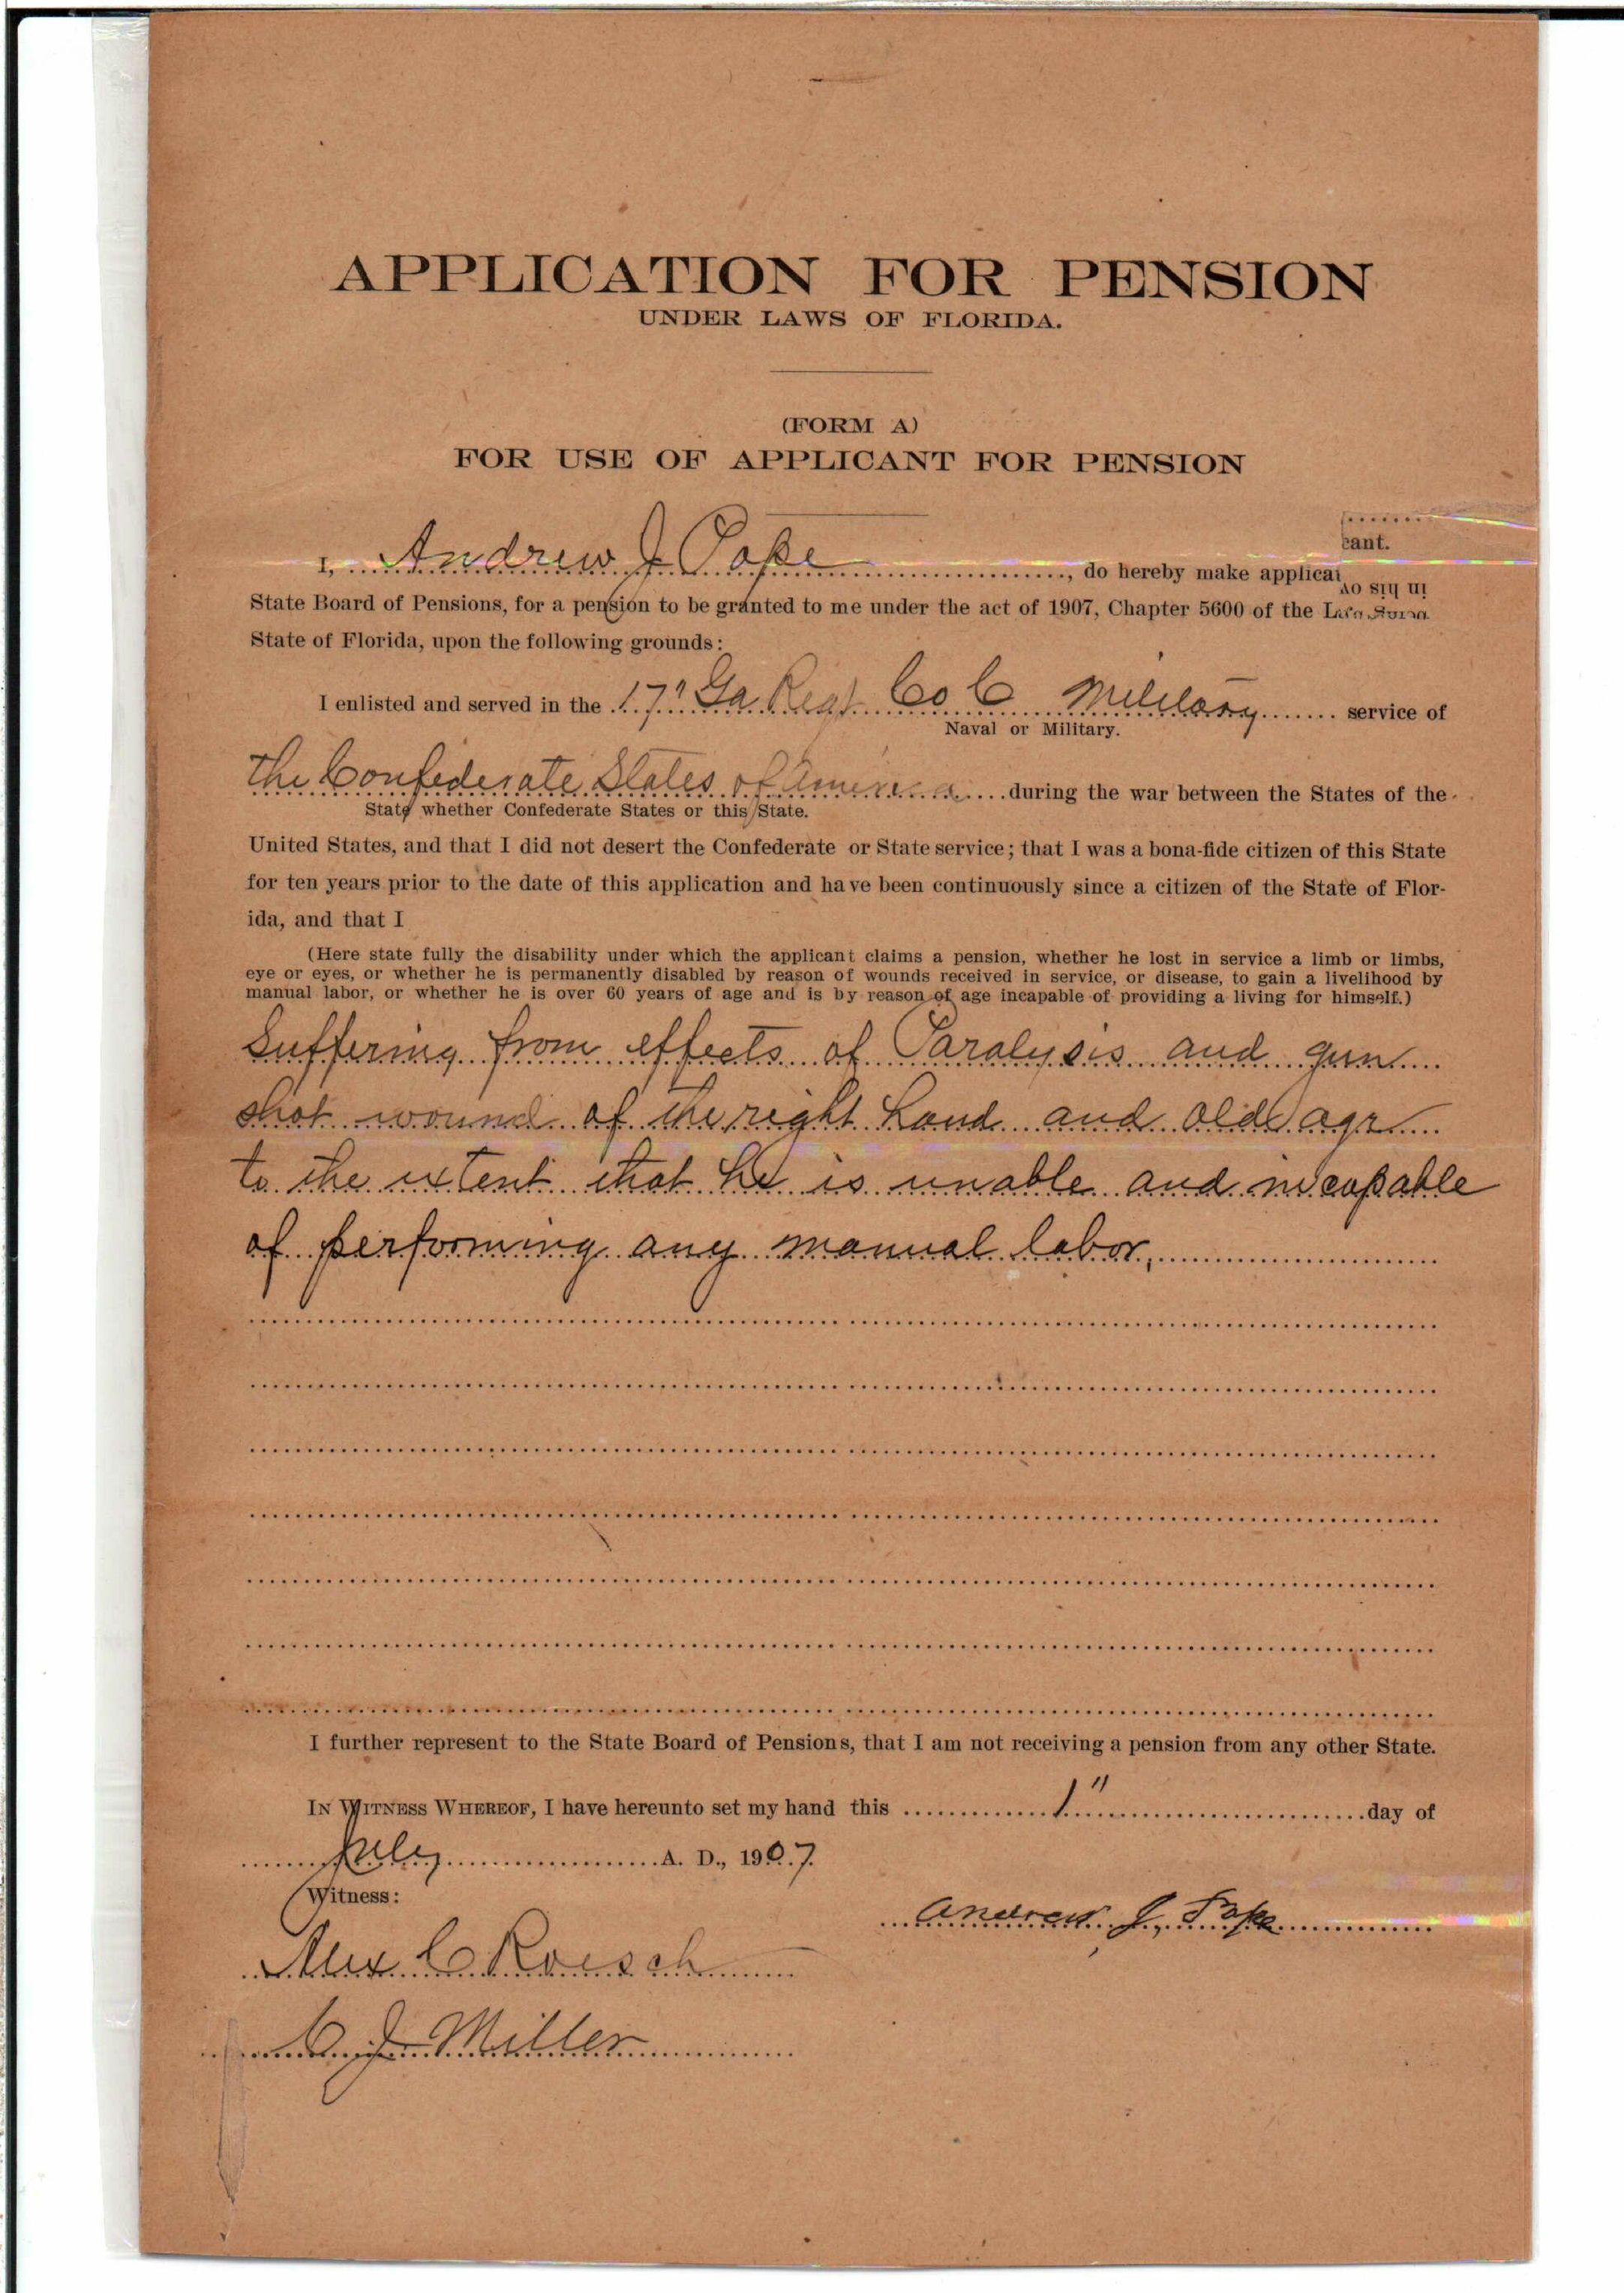 APPLICATION FOR PENSION
UNDER LAWS OF FLORIDA.
(FORM A)
FOR USE OF APPLICANT FOR PENSION
cant.
I, Andrew J Pope, do hereby make applicat
in his
State Board of Pensions, for a pension to be granted to me under the act of 1907, Chapter 5600 of the
State of Florida, upon the following grounds:
I enlisted and served in the 17" Ga Regt Co C Military service of
Naval or Military.
the Confederate States of America during the war between the States of the
State whether Confederate States or this State.
United States, and that I did not desert the Confederate or State service; that I was a bona-fide citizen of this State
for ten years prior to the date of this application and have been continuously since a citizen of the State of Flor-
ida, and that I
(Here state fully the disability under which the applicant claims a pension, whether he lost in service a limb or limbs,
eye or eyes, or whether he is permanently disabled by reason of wounds received in service, or disease, to gain a livelihood by
manual labor, or whether he is over 60 years of age and is by reason of age incapable of providing a living for himself.)
Suffering from effects of Paralysis and gun
shot wound of the right hand and old age
to the extent that he is unable and incapable
of performing any manual labor,
I further represent to the State Board of Pensions, that I am not receiving a pension from any other State.
IN WITNESS WHEREOF, I have hereunto set my hand this 1" day of
July A. D., 1907.
Witness:
Andrew J, Pope
Alex C Roesch
C J Miller